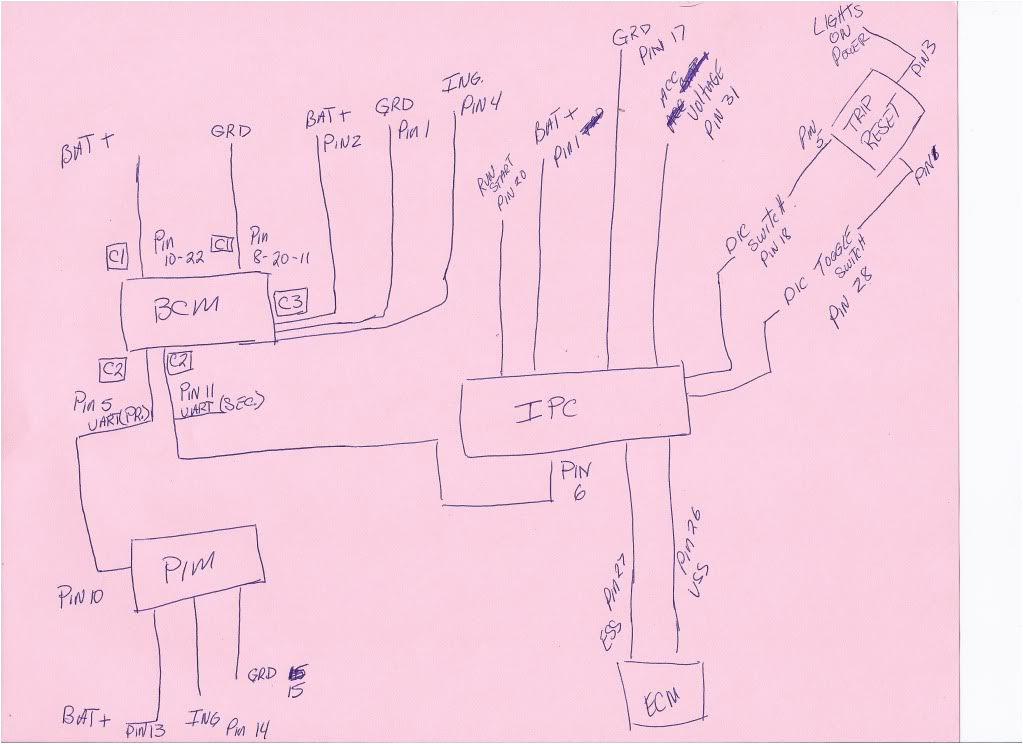 LIGHTS
ON
POWER
PIN 3
TRIP
RESET
PIN
5
GRD
PIN 17
ACC
VOLTAGE
PIN 31
BAT+
PIN 1
RUN
START
PIN 20
ING.
PIN 4
GRD
PIN 1
BAT+
PIN 2
GRD
BAT+
C1
PIN
10-22
C1
PIN
8-20-11
BCM
C3
C2
C2
PIN 5
UART(PR.)
PIN 11
UART (SEC.)
DIC
SWITCH
PIN 18
DIC TOGGLE
SWITCH
PIN 28
IPC
PIN
6
PIN 27
ESS
PIN 26
VSS
ECM
PIM
PIN 10
GRD
15
BAT+
PIN 13
ING
PIN 14